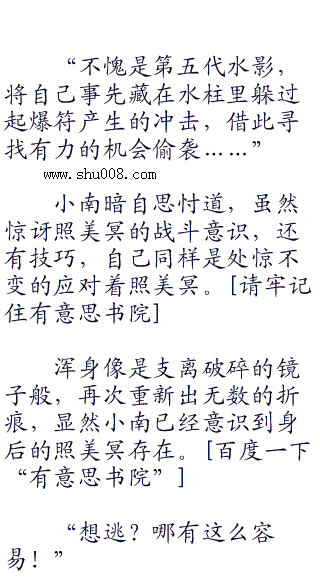 “不愧是第五代水影，
将自己事先藏在水柱里躲过
起爆符产生的冲击，借此寻
找有力的机会偷袭……”
www.shu008.com
小南暗自思忖道，虽然
惊讶照美冥的战斗意识，还
有技巧，自己同样是处惊不
变的应对着照美冥。[请牢记
住有意思书院]
浑身像是支离破碎的镜
子般，再次重新出无数的折
痕，显然小南已经意识到身
后的照美冥存在。[百度一下
“有意思书院”]
“想逃？哪有这么容
易！”